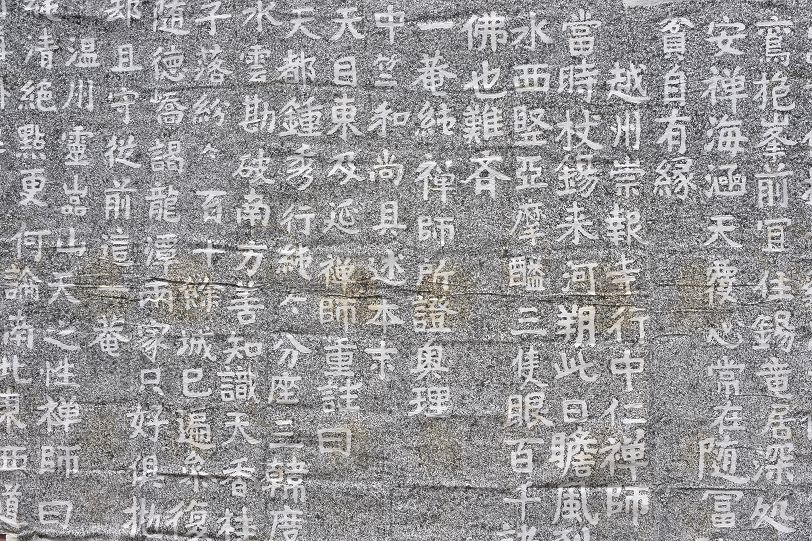 抱峯前宜住錫竜居深处
安禅海涵天覆心常在随富
貧自有緣
越州崇報寺行中仁禅師
當時杖錫来河朔此日瞻風
水西堅亞摩醯三隻眼百千諸
佛也難吞
一菴純禅師所證奥理
中竺和尚且述本末
天目東及延禅師重註曰
天都鍾秀行純々分座三韓度
水雲勘破南方善知識天香桂
子落紛々百十餘城已遍参復
隨德嶠謁龍潭両家只好俱拗
却且守從前這一菴
温川靈嵓山天之性禅師曰
純清絶點更何論南北東西道